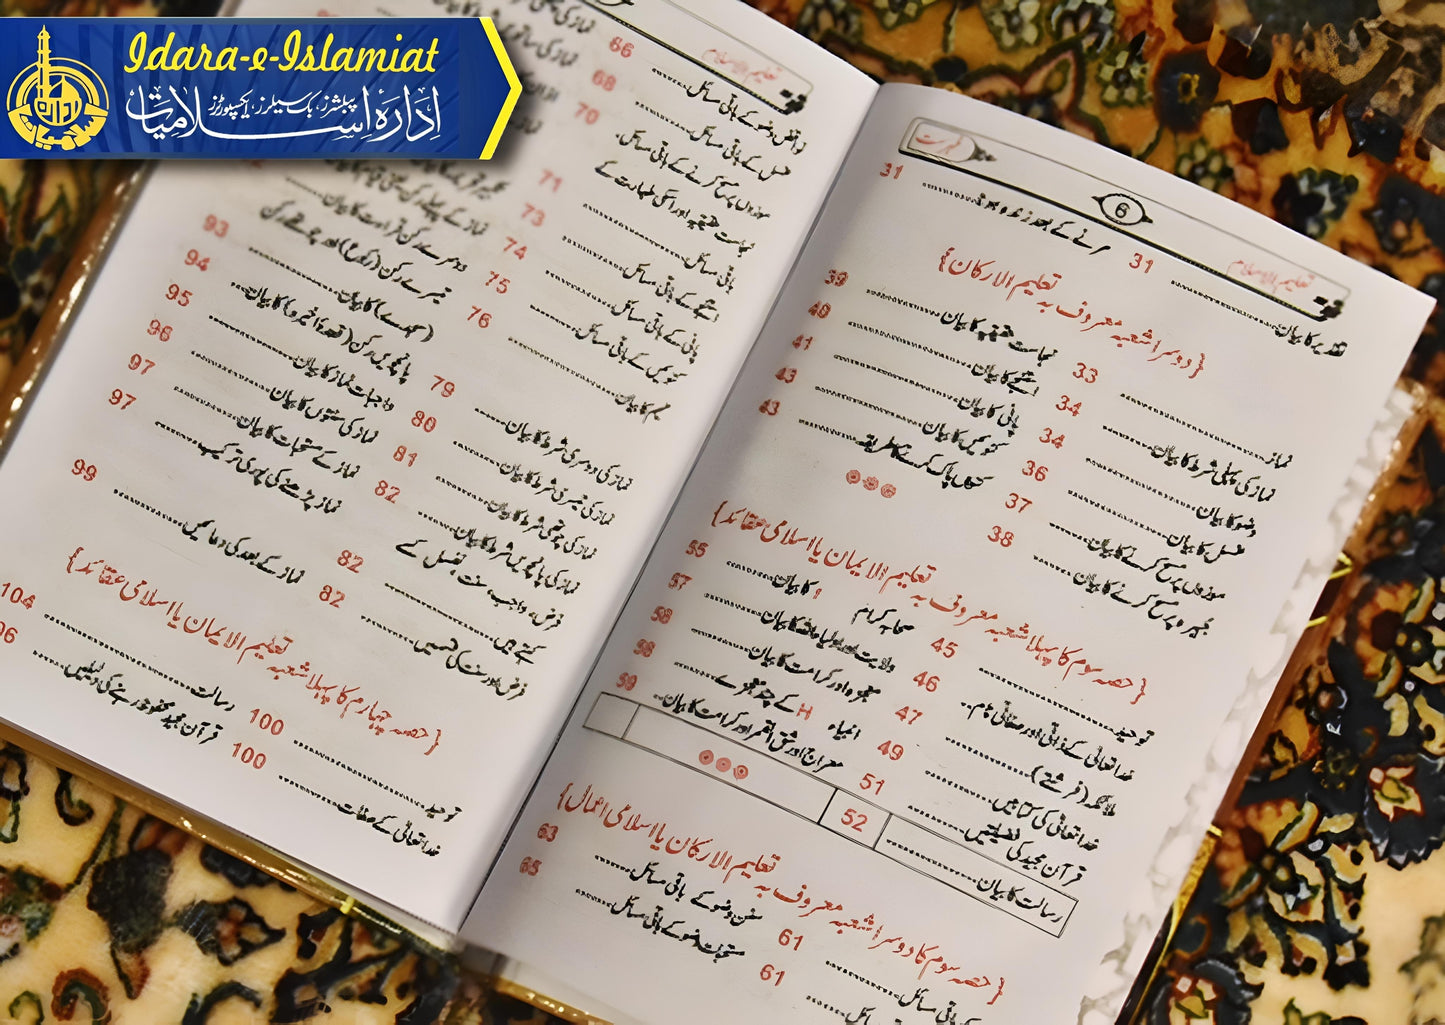 Idara-e-Islamiat
پبلشرز، بک سیلرز، ایکسپورٹرز
ادارۂ اسلامیات
ادارۂ اسلامیات
فہرست
6
تعلیم الاسلام
تقدیر کا بیان 31
مرنے کے بعد زندہ ہونا 31
{دوسرا شعبہ معروف بہ تعلیم الارکان}
نماز 33
نماز کی پہلی شرط کا بیان 34
وضو کا بیان 34
غسل کا بیان 36
موزوں پر مسح کرنے کا بیان 37
جبیرہ پر مسح کرنے کا بیان 38
نجاست حقیقیہ کا بیان 39
استنجے کا بیان 40
پانی کا بیان 41
کنویں کا بیان 43
کنواں پاک کرنے کا طریقہ 43
{حصہ سوم کا پہلا شعبہ معروف بہ تعلیم الایمان یا اسلامی عقائد}
توحید 45
خدا تعالیٰ کے ذاتی اور صفاتی نام 46
ملائکہ (فرشتے) 47
خدا تعالیٰ کی کتابیں 49
قرآن مجید کی فضیلتیں 51
رسالت کا بیان 52
صحابہ کرام کا بیان 55
ولایت اور اولیاء اللہ کا بیان 57
معجزہ اور کرامت کا بیان 58
انبیاء H کے چند معجزے 58
معراج اور شق القمر اور کرامت کا بیان 59
{حصہ سوم کا دوسرا شعبہ معروف بہ تعلیم الارکان یا اسلامی اعمال}
باقی مسائل 61
باقی مسائل 61
سنن وضو کے باقی مسائل 63
مستحبات وضو کے باقی مسائل 65
تعلیم الاسلام
نواقض وضو کے باقی مسائل 66
غسل کے باقی مسائل 68
موزوں پر مسح کرنے کے باقی مسائل 70
نجاست حقیقیہ اور اسکی طہارت کے
باقی مسائل 71
استنجے کے باقی مسائل 73
پانی کے باقی مسائل 74
کنویں کے باقی مسائل 75
تیمم کا بیان 76
نماز کی دوسری شرط کا بیان 79
نماز کی تیسری شرط کا بیان 80
نماز کی چوتھی شرط کا بیان 81
نماز کی پانچویں شرط کا بیان 82
فرض، واجب، سنت، نفل کسے
کہتے ہیں 82
فرض اور سنت کی قسمیں 82
دوسرے رکن قراءت کا بیان
تیسرے رکن (رکوع) اور چوتھے رکن
(سجدے) کا بیان 93
پانچویں رکن (قعدۂ اخیرہ) کا بیان 94
واجبات نماز کا بیان 95
نماز کی سنتوں کا بیان 96
نماز کے مستحبات کا بیان 97
نماز پڑھنے کی پوری ترکیب 97
نماز کے بعد کی دعائیں 99
{حصہ چہارم کا پہلا شعبہ تعلیم الایمان یا اسلامی عقائد}
توحید 100
خدا تعالیٰ کے صفات 100
رسالت 104
قرآن مجید محفوظ ہونے کی دلیلیں